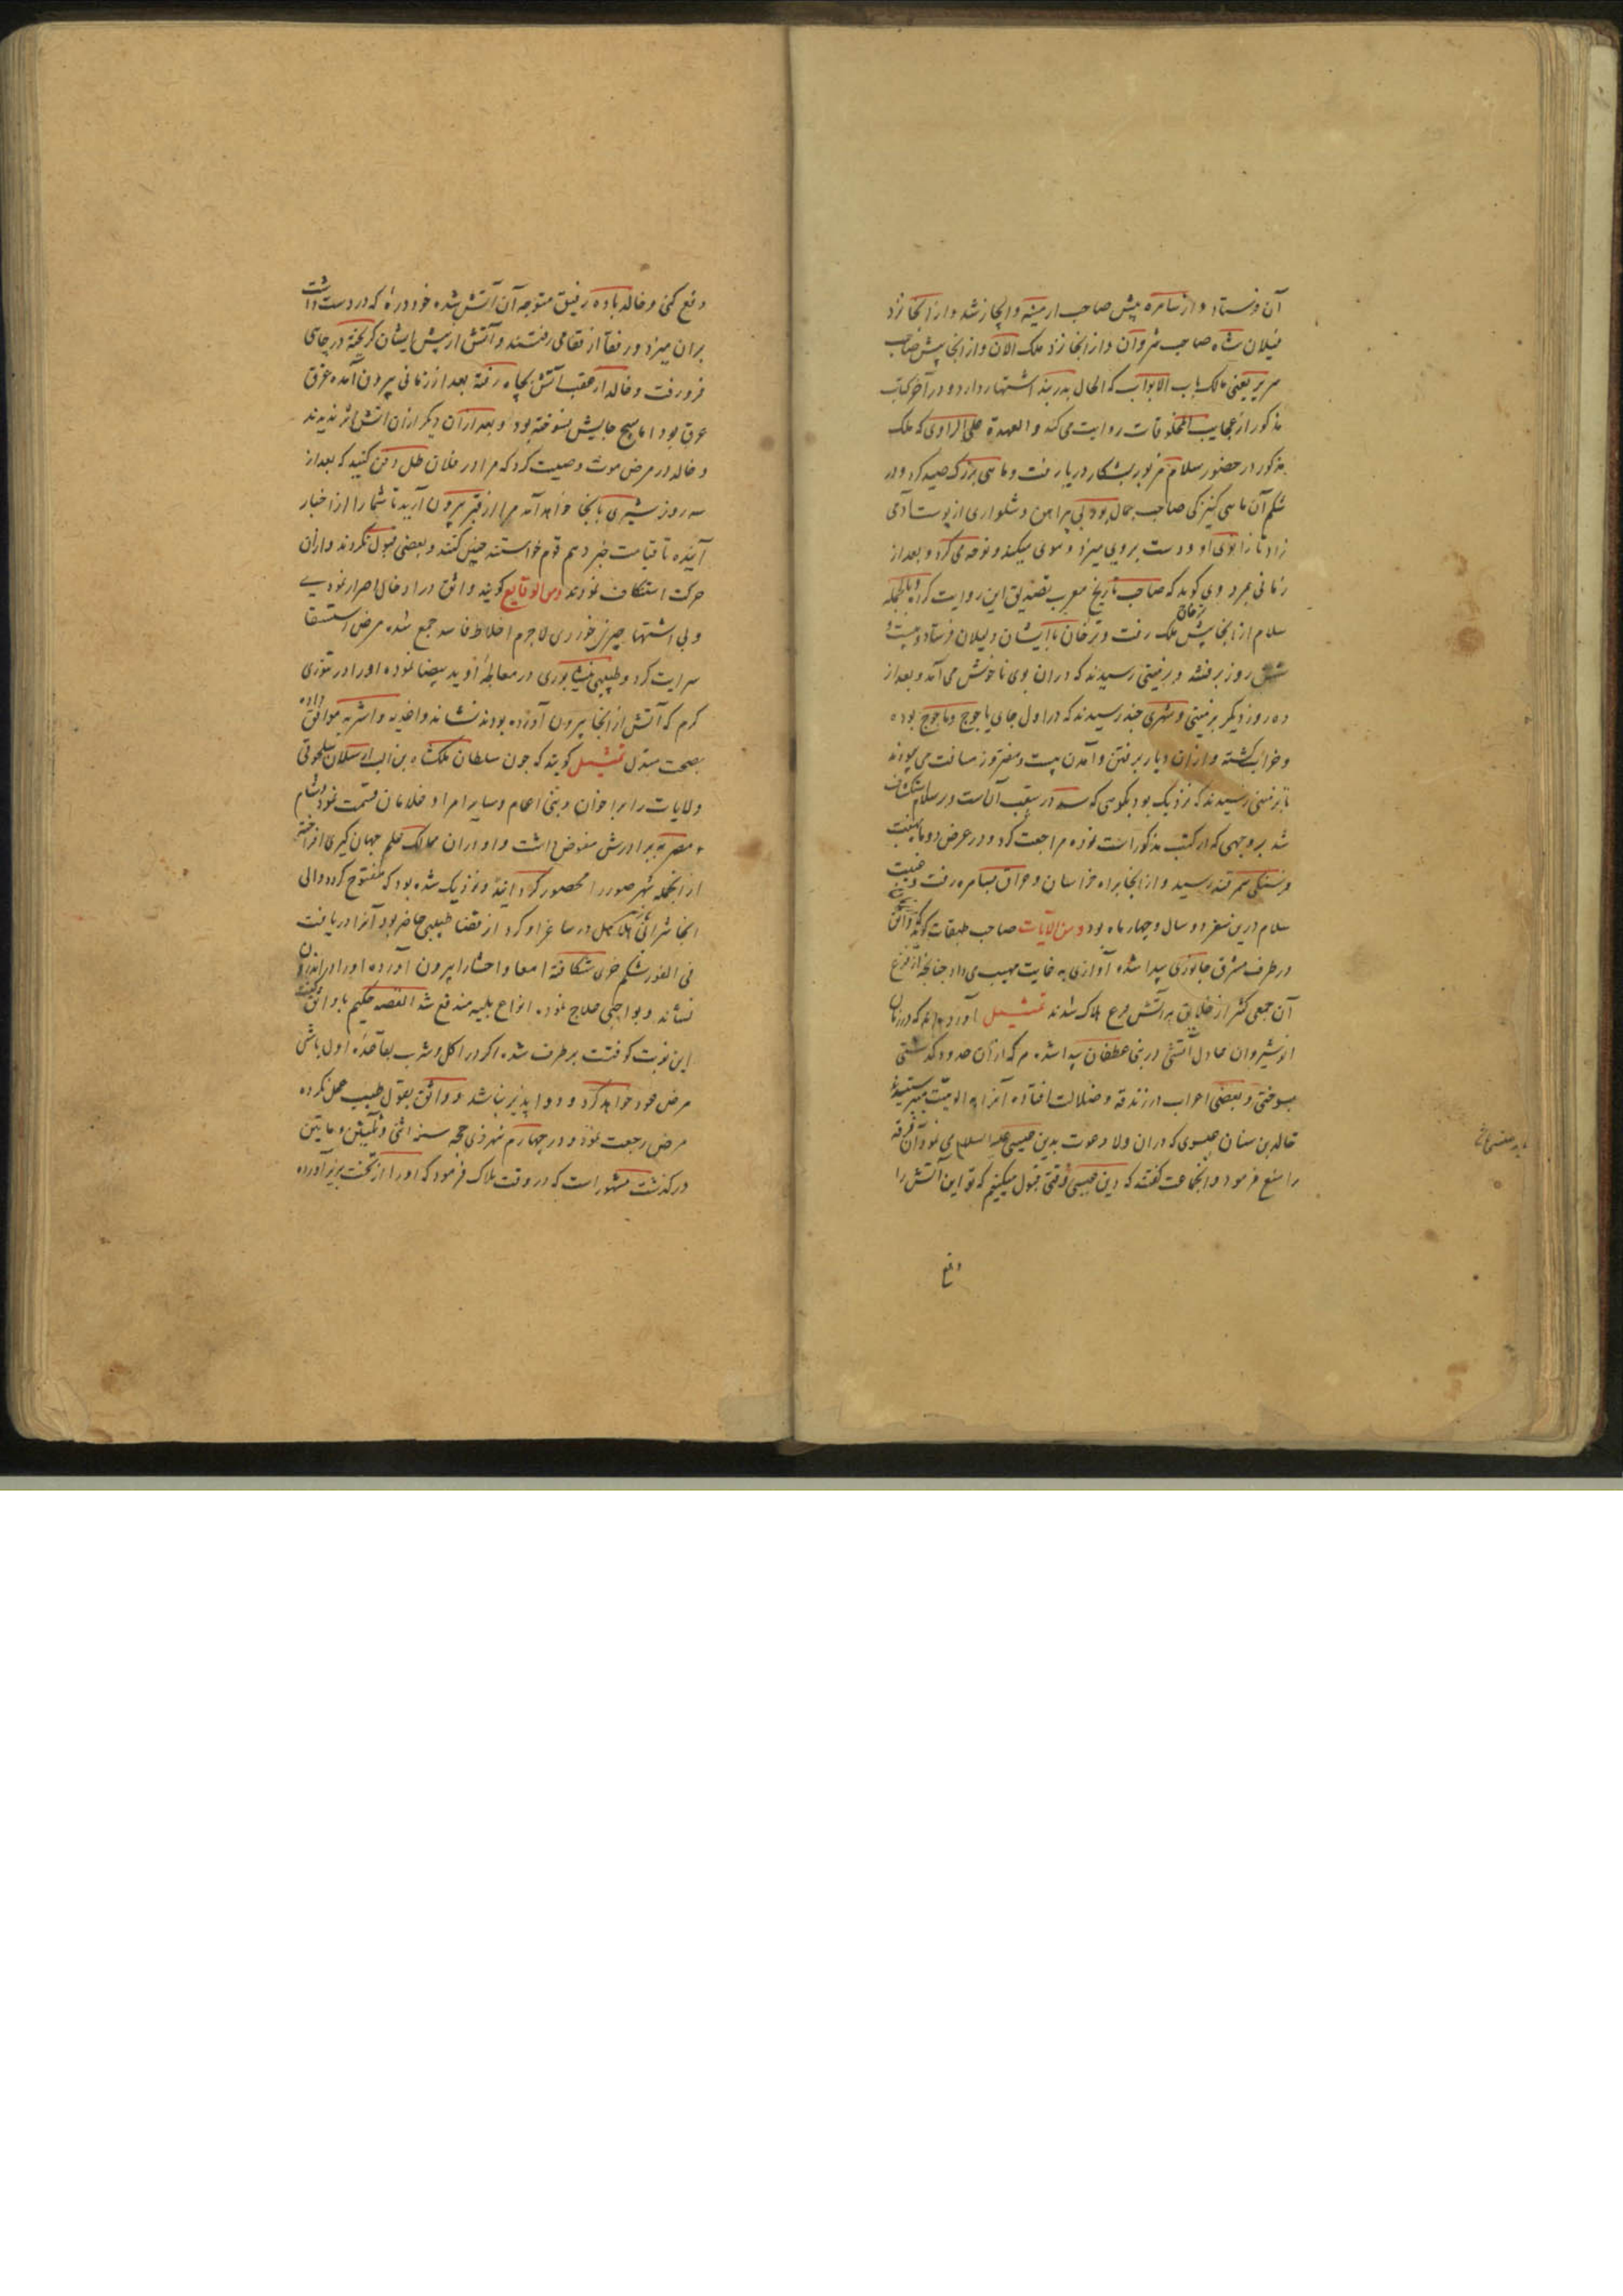 آن فرستاد و از سامره پیش صاحب ارمینه و ابخاز شد و از انجا نزد
فیلان شاه صاحب شروان و از انجا نزد ملک الان و از انجا پیش صاحب
سریر یعنی مالک باب الابواب که الحال بدربند اشتهار دارد و در آخر کتاب
مذکور از عجایب المخلوقات روایت می کند و العهدة علی الراوی که ملک
مذکور در حضور سلام مزبور بشکار دریا رفت و ماهی بزرگ صید کرد و در
شکم آن ماهی کنیزکی صاحب جمال بود بی پیراهن و شلواری از پوست آدمی
زاد تا زانوی او و دست بروی میزد و موی میکند و نوحه می کرد و بعد از
زمانی بمرد وی کوید که صاحب تاریخ مغرب تصدیق این روایت کرده بالجمله
سلام از انجا پیش ملک رفت و ترخان با ایشان دلیلان فرستاد و بیست و
شش روز برفتند و بزمینی رسیدند که دران بوی ناخوش می آمد و بعد از
ده روز دیکر بزمینی و شهری چند رسیدند که در اول جای یاجوج و ماجوج بوده
و خراب کشته و ازان دیار برفتن و آمدن بیست و هفتروز مسافت می پیمودند
تا بزمینی رسیدند که نزدیک بود بکوهی که سد در عقب آنست و بر سلام انکشاف
شد بر وجهی که در کتب مذکور است نوده مراجعت کرد و در عرض دو ماه بهفت
فرسنکی سمرقند رسید و از انجا براه خراسان و عراق بسامره رفت و غیبت
سلام درین سفر دو سال و چهار ماه بود و من الآیات صاحب طبقات کوید که واثق
در طرف مشرق جانوری پیدا شده آوازی به غایت مهیب می داد چنانچه از فزع
آن جمعی کثیر از خلایق هلاک شدند تمثیل آورده اند که در زمان
انوشیروان عادل آتشی در بنی غطفان پیدا شده هر که ازان حدود کذشتی
بسوختی و بعضی اعراب در زندقه و ضلالت افتاده آنرا به الوهیت می پرستیدند
خالد بن سنان عبسوی که دران ولا دعوت بدین عیسی علیه السلام می نمود آن فرقه
را منع فرمود و انجماعت کفتند که دین عیسی وقتی قبول میکنیم که تو این آتش را
دفع
دفع کنی و خالد با ده رفیق متوجه آن آتش شده خود دره که در دست داشت
بران میزد و رفقا از قفا می رفتند و آتش از پیش ایشان کریخته در چاهی
فرو رفت و خالد از عقب آتش بچاه رفته بعد از زمانی بیرون آمده غرق
عرق بود اما هیچ جایش نسوخته بود و بعد ازان دیکر ازان آتش اثر ندیدند
و خالد در مرض موت وصیت کرد که مرا در فلان طل دفن کنید که بعد از
سه روز شیری بانجا خواهد آمد مرا از قبر بیرون آرید تا شما را از اخبار
آینده تا قیامت خبر دهم قوم خواستند چنین کنند و بعضی قبول نکردند و ازان
حرکت استنکاف نمودند و من الوقایع کویند واثق در ادخال اصرار نمودی
و بی اشتها چیز خوردی لاجرم اخلاط فاسد جمع شده مرض استسقا
سرایت کرد و طبیبی نیشابوری در معالجه او ید بیضا نموده او را در تنوری
کرم که آتش از انجا بیرون آورده بودند نشاند و اغذیه و اشربه موافق داده
بصحت مبدل تمثیل کویند که چون سلطان ملکشاه بن الب ارسلان سلجوقی
ولایات را برادران و بنی اعمام و سایر امرا و غلامان قسمت نمود و شام
و مصر به برادرش مفوض داشت و او دران ممالک علم جهان کیری افراخته
از انجمله شهر صور را محصور کردانیده و نزدیک شده بود که مفتوح کردد والی
انجا شرابی هلاهل در ساغر او کرد از قضا طبیبی حاضر بود آنرا دریافت
فی الفور شکم خری شکافته امعا و احشا را بیرون آورده او را در اندرون
نشاند و بواجبی علاج نمود انواع بلیه مندفع شد القصه حکیم با واثق کفت
این نوبت کوفتت برطرف شده اکر در اکل و شرب بقاعده اول باشی
مرض عود خواهد کرد و دوا پذیر نباشد و واثق بقول طبیب عمل نکرده
مرض رجعت نمود و در چهارم شهر ذی حجه سنه اثنی و ثلثین و مایتین
درکذشت مشهور است که در وقت هلاک فرمود که او را از تخت بزیر آورده